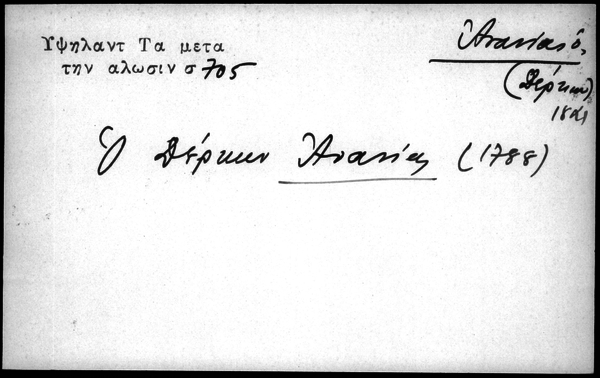 Υψηλαντ Τα μετα
την αλωσιν σ 705
Ἀνανίας ὁ,
(Δέρκων)
Ὁ Δέρκων Ἀνανίας (1788)